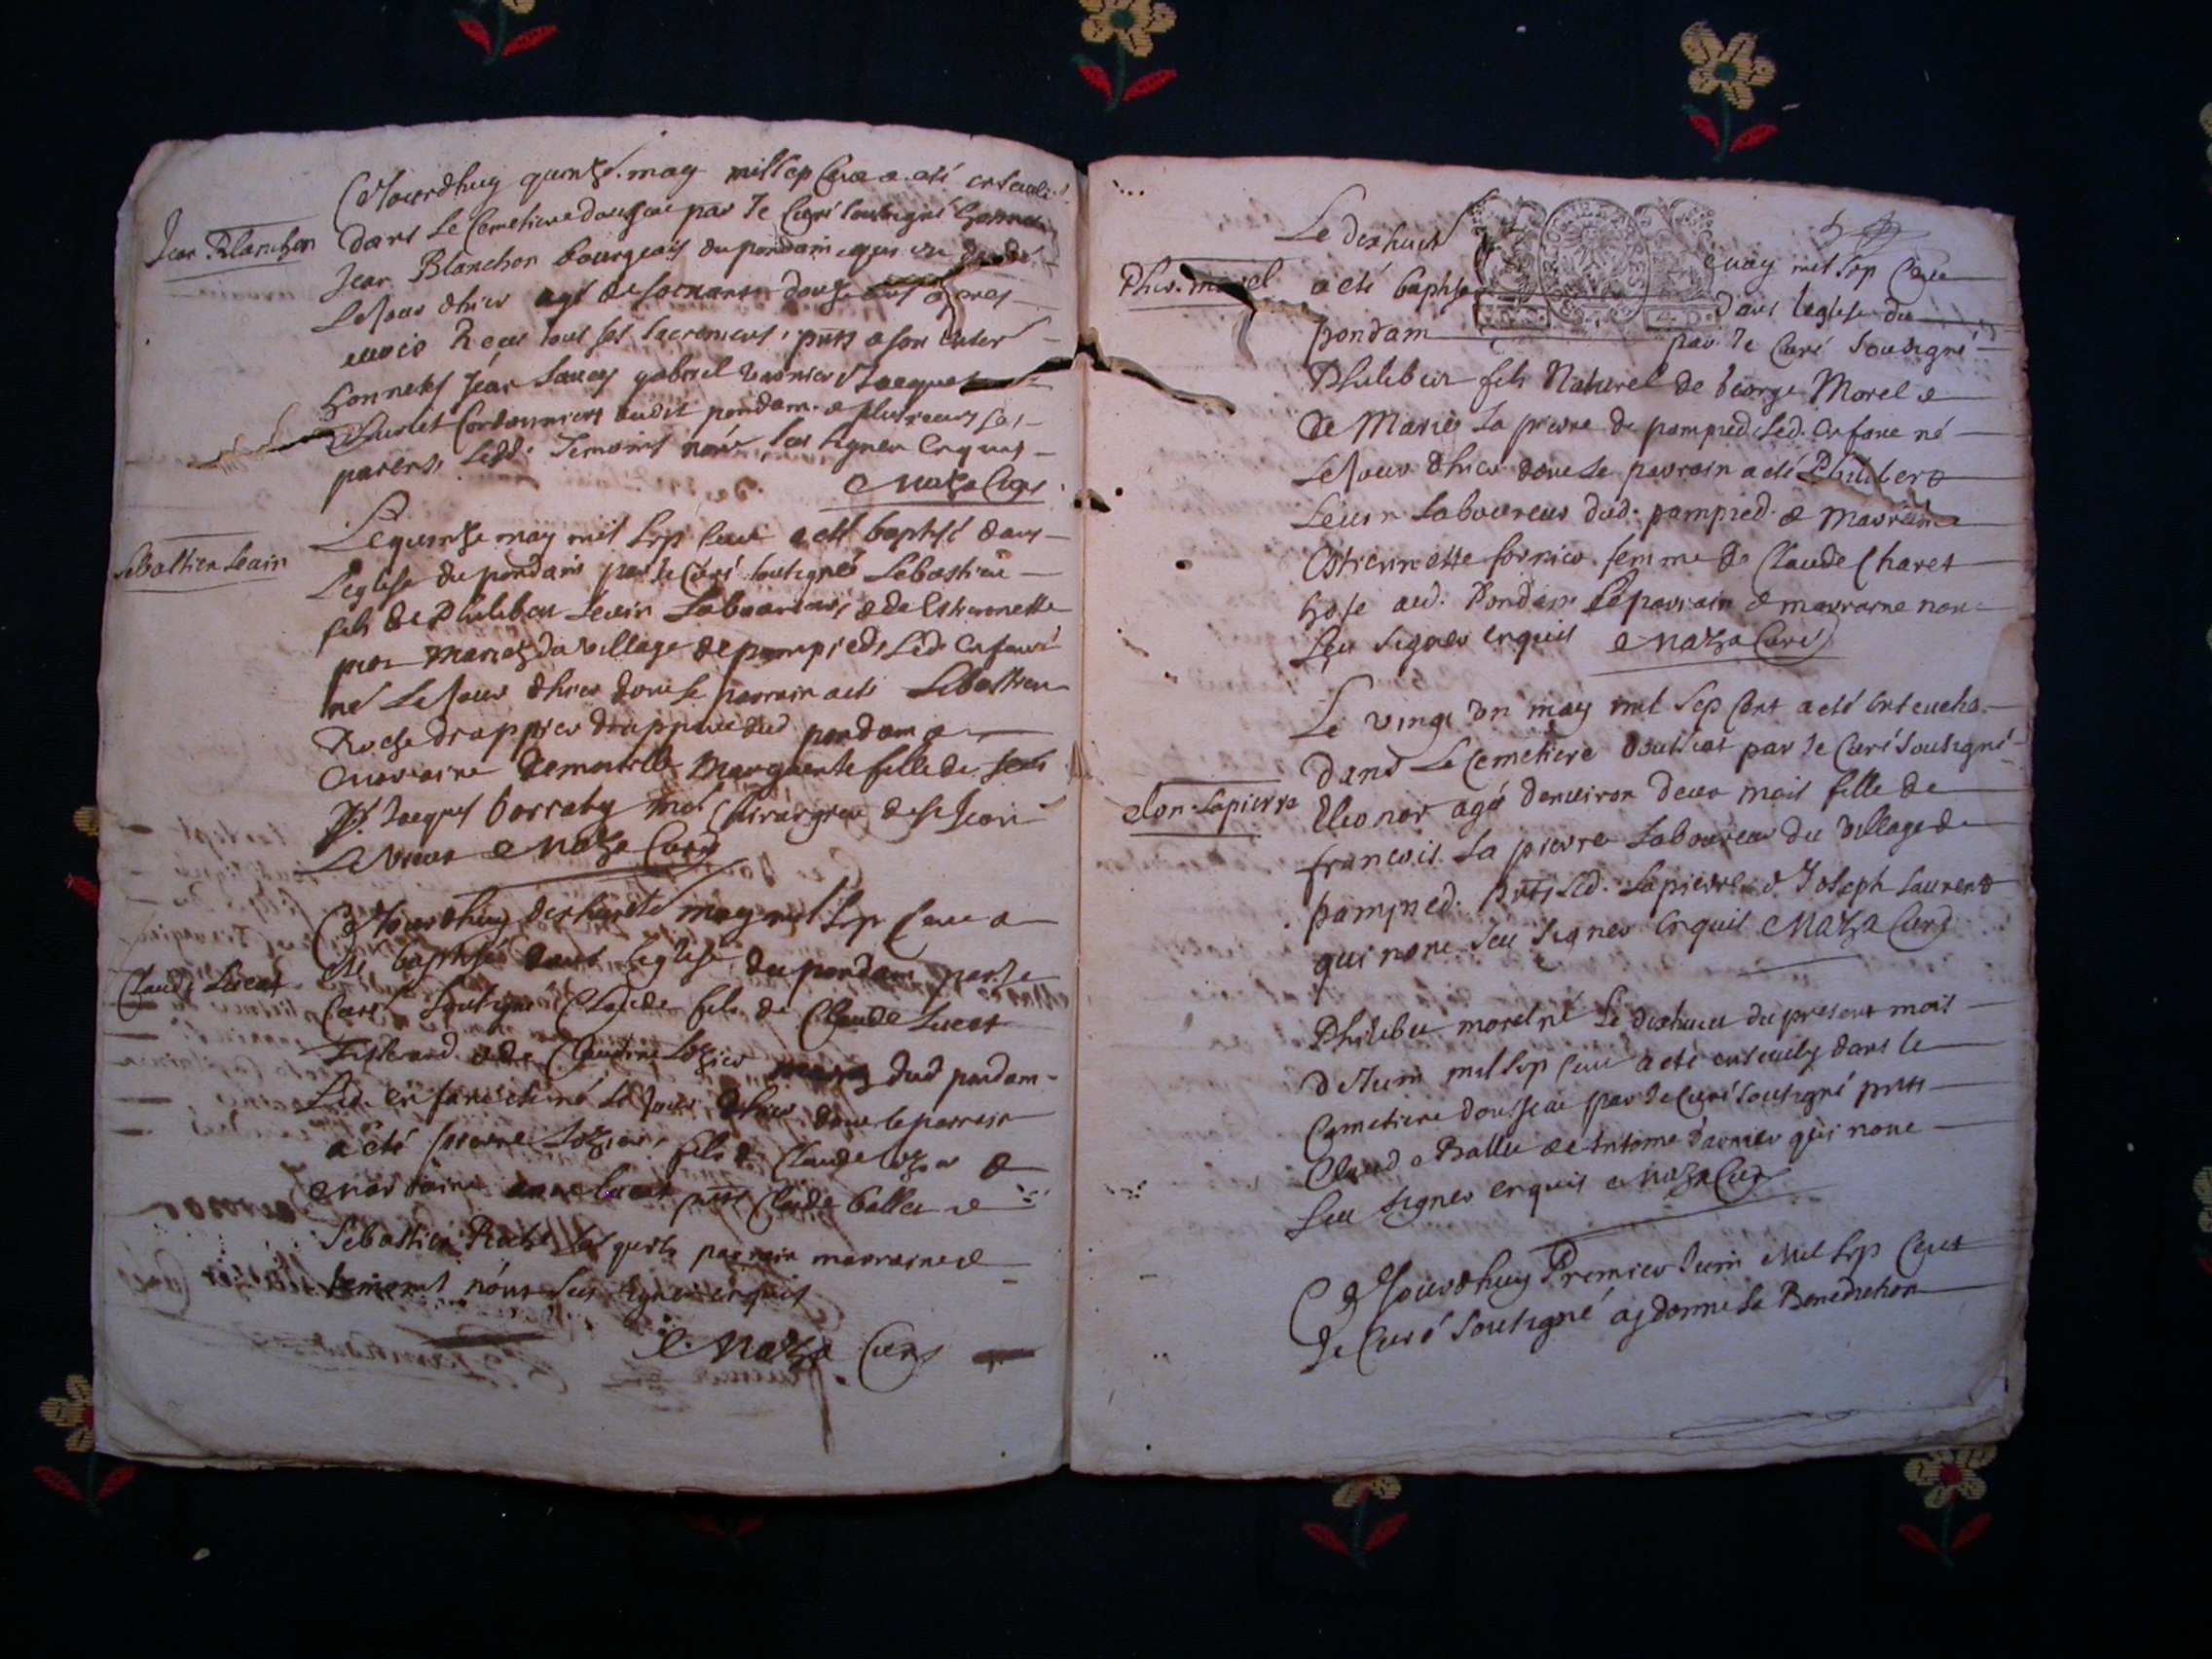 Cejourdhuy quinze may mil sep cens a eté enseveli
Jean Blanchon
dans le Cemetiere dousse par Je Curé soubsigné honneste
Jean Blanchon bourgeois du pondain
le Jour dhier agé de soixante douze ans apres
avoir Receu tous ses sacremens, pnts a son enter
honnestes Jean gabriel Jacques
Cordonniers audit pondain & plusieurs ses
parens, lesd. Temoins non sceu signer Enquis
Maza Curé
Le quinze may mil sep cens a esté baptisé dans
Sebastien Levin
Leglise du pondain par Je Curé soubsigné Sebastien
fils de Philibert Levin Laboureur, & de Estiennette
mariez du village de pampied, Led. Enfant
né le Jour dhier dont le parrain a eté Sebastien
Roche drappier dud pondain &
marraine Demoiselle Marguerite fille de
Sr. Jacques Mre Chirurgien de St Jean
Le vieux Maza Curé
Cejourdhuy dixhuit may mil sep cens a
eté baptisé dans leglise du pondain par Je
Claude Lucat
Curé soubsigné Claude fils de Claude Lucat
Tisserand & de Claudine dud pondain
Led. enfant né le Jour dhier, dont le parrein
a eté pierre fils de Claude &
marraine anne Lucat pnts Claude Ballet &
Sebastien Roche lesquels parrain marraine &
temoins nont sceu signer enquis
Maza Curé
Le dixhuit may mil sep cens
Phi. morel
a eté baptisé dans leglise du
pondain par Je Curé soubsigné
Philibert fils Naturel de George Morel &
De Marie La pierre de pampied, Led. Enfant né
Le Jour dhier dont le parrain a eté Philibert
Levin Laboureur dud. pampied & marraine
Estiennette fornier femme de Claude Charet
hoste aud. Pondain Le parrain & marraine nont
sceu signer enquis Maza Curé
Le vingt un may mil sep cent a eté enseveli
dans Le Cemetiere dousse par Je Curé soubsigné
elon. Lapierre
Eleonor agé denviron deux mois fille de
francois La pierre Laboureur du village de
pampied. pnts Led. Lapierre & Joseph Laurent
qui nont sceu signer Enquis Maza Curé
Philibert morel né Le dixhuit du present mois
de Juin mil sep cens a eté ensevely dans le
Cemetiere dousse par Je Curé soubsigné pnts
Claude Ballet & Antoine qui nont
sceu signer enquis Maza Curé
Cejourdhuy Premier Juin mil sep cent
Je Curé soubsigné ay donné La Benediction